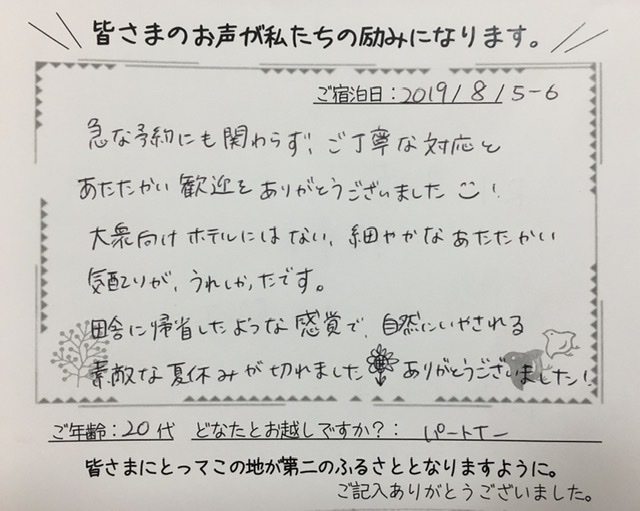 皆さまのお声が私たちの励みになります。
ご宿泊日：2019/8/5-6
急な予約にも関わらず、ご丁寧な対応と
あたたかい歓迎をありがとうございました!
大衆向けホテルにはない、細やかなあたたかい
気配りが、うれしかったです。
田舎に帰省したような感覚で、自然にいやされる
素敵な夏休みが切れました ありがとうございました!
ご年齢：20代 どなたとお越しですか？： パートナー
皆さまにとってこの地が第二のふるさととなりますように。
ご記入ありがとうございました。